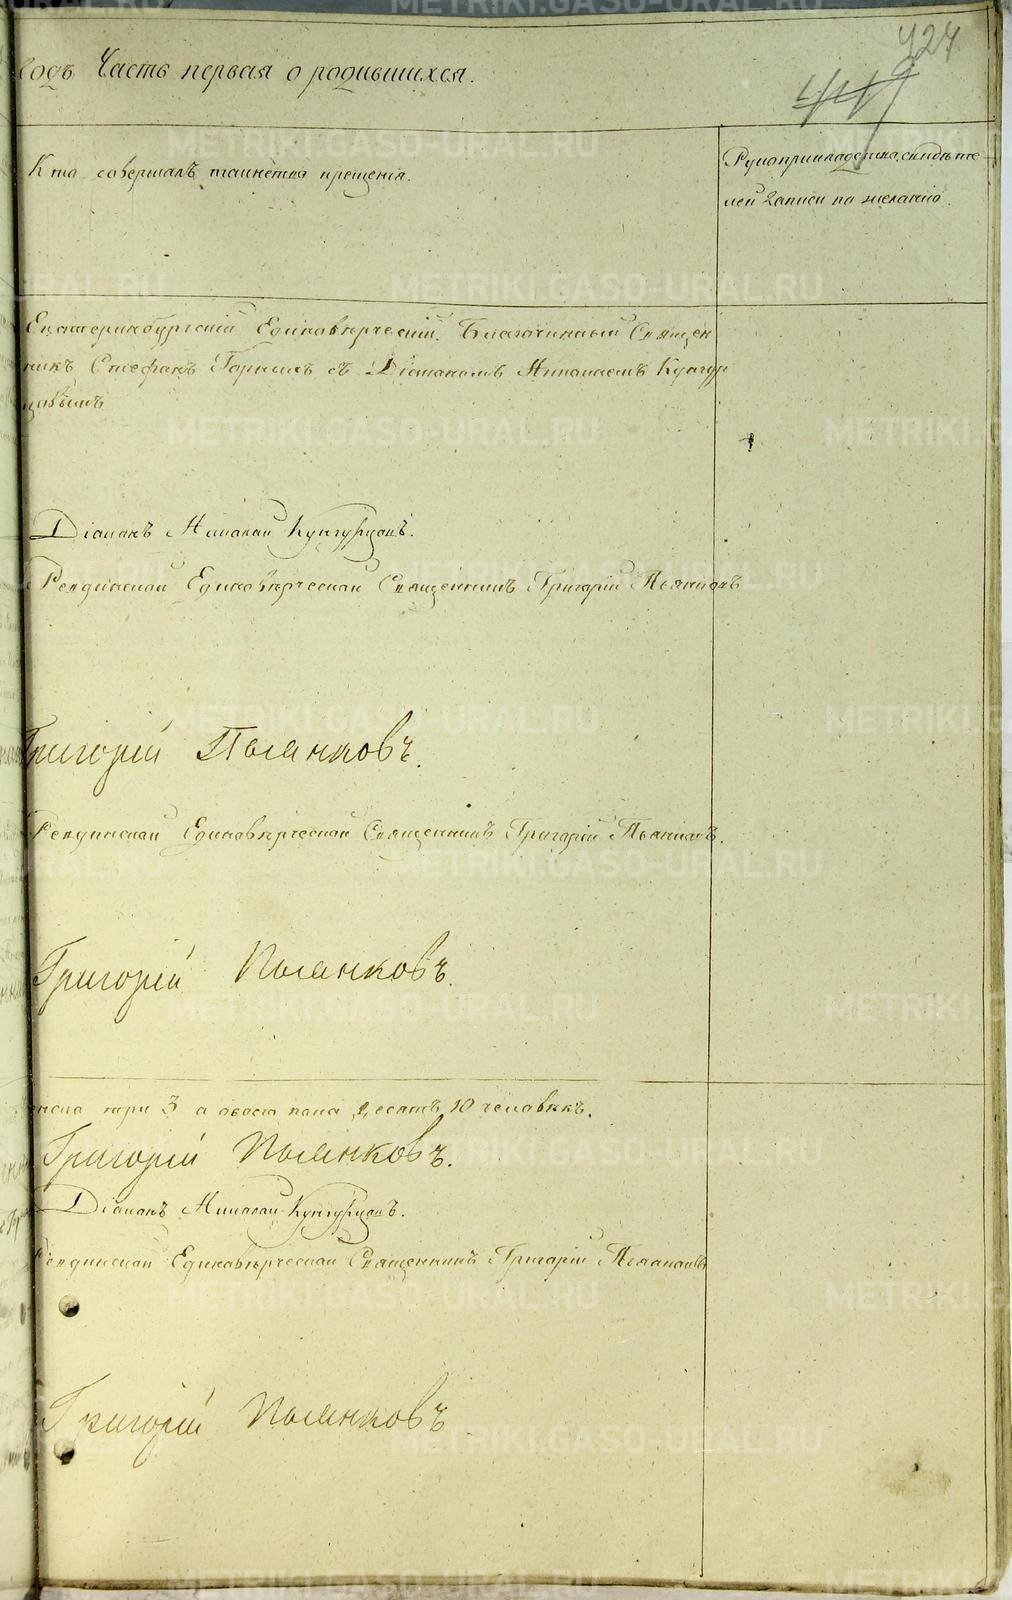 424
449
годъ Часть первая о родившихся.
Кто совершалъ таинство крещенія.
Рукоприкладство свидѣте-
лей записи по желанію.
Екатеринбургскій Единовѣрческій Благочинный Священ
никъ Стефанъ с Діакономъ Николаемъ Кунгур
цовымъ
Діаконъ Николай Кунгурцовъ.
Ревдинской Единовѣрческой Священникъ Григорій Пьянковъ
Григорій Пьянковъ.
Ревдинской Единовѣрческой Священникъ Григорій Пьянковъ.
Григорій Пьянковъ.
три 3 а обоего пола десять 10 человѣкъ.
Григорій Пьянковъ.
Діаконъ Николай Кунгурцовъ.
Ревдинской Единовѣрческой Священникъ Григорій Пьянковъ
Григорій Пьянковъ
METRIKI.GASO-URAL.RU